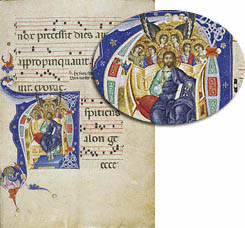 Nox precessit dies au
appropinquauit
evovae
spitiens
alon ge
ecce